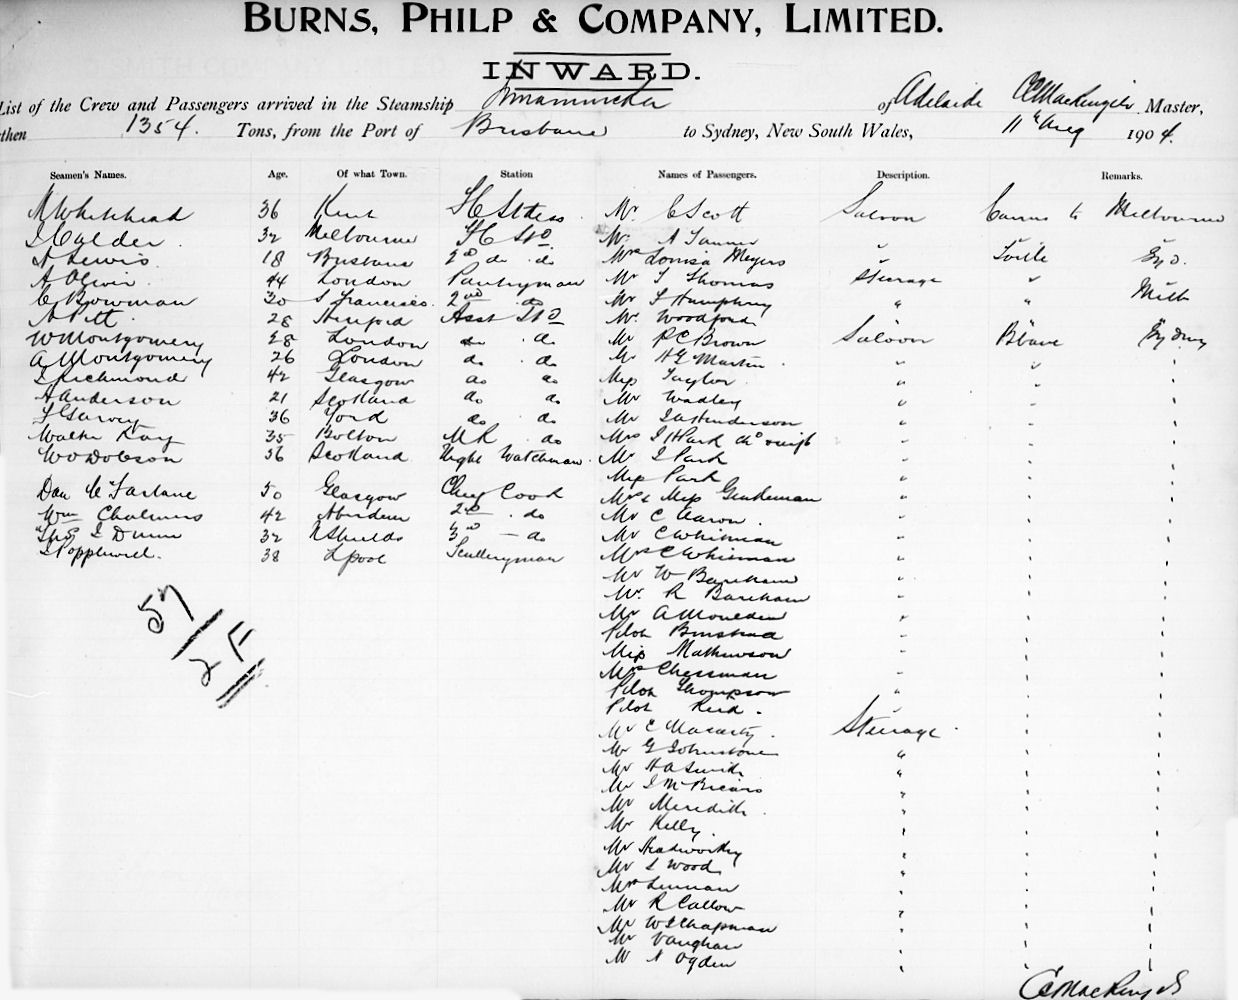 BURNS, PHILP & COMPANY, LIMITED.
INWARD.
List of the Crew and Passengers arrived in the Steamship Innamincka of Adelaide Master,
then 1354. Tons, from the Port of Brisbane to Sydney, New South Wales, 11th Aug 1904.
Seamen's Names. Age. Of what Town. Station Names of Passengers. Description. Remarks.
M Whitehead 36 Kent Mr C Scott Saloon Cairns to Melbourne
J Calder. 32 Melbourne Mr A Tanner "
A Lewis. 18 Brisbane 2nd do do Mrs Louisa Meyers " Tville Syd.
A Oliver. 44 London Pantryman Mr T Thomas Steerage "
C Bowman 30 S Francisco. 2nd do Mr J Humphrey " " Melb
A Pitt. 28 Asst Std Mr Woodford
W Montgomery 28 London do do Mr R C Brown Saloon B'bane Sydney
A Montgomery 26 London do do Mr H E Martin. " "
Richmond 42 Glasgow do do Miss Taylor. " "
A Anderson 21 Scotland do do Mr Wadley "
J Garvey 36 York do do Mr Henderson "
Walter Kay 35 Bolton M R do Mrs J H Park "
W O Dobson 36 Scotland Night Watchman. Mr J Park "
Miss Park
Dan Mc Farlane 50 Glasgow Chief Cook Mrs & Miss Gentleman "
Wm Chalmers 42 Aberdeen 2nd do Mr C Aaron. "
Thos J Dunn 32 N Shields 3rd do Mr C Whitman "
Popplewell. 38 L'pool Sculleryman Mrs C Whitman "
Mr W Bareham "
Mr R Bareham "
57 Mr A Moulden "
Pilot Binstead "
2 F Miss Mathewson "
Mrs Chessman "
Pilot Thompson "
Pilot Reid. "
Mr C Macarty. Steerage.
Mr G Johnstone "
Mr H A Smith "
Mr J McBriars "
Mr Meredith. "
Mr Kelly. "
Mr Headworthy "
Mr L Wood "
Mrs Lennan "
Mr R Callow "
Mr W J Chapman "
Mr Vaughan "
Mr N Ogden "